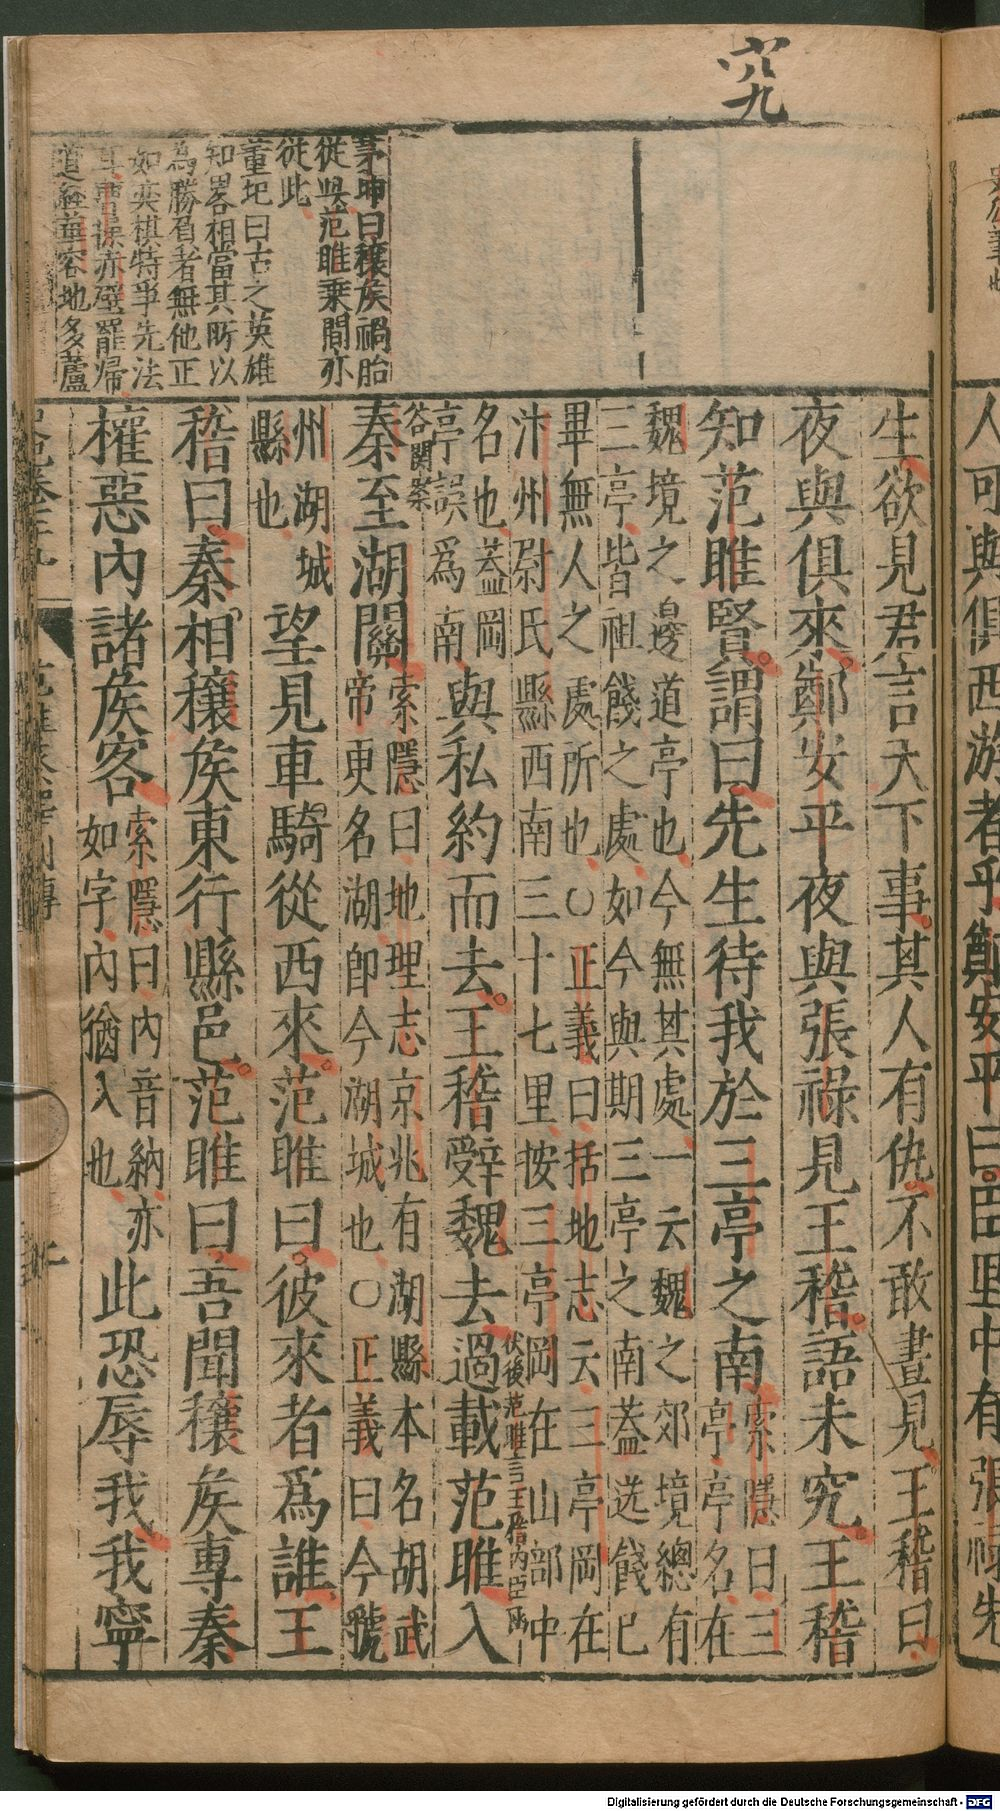 究
生欲見君言天下事其人有仇不敢晝見王稽曰
夜與俱來鄭安平夜與張祿見王稽語未究王稽
知范雎賢謂曰先生待我於三亭之南
索隱曰三
亭亭名在
魏境之邊道亭也今無其處一云魏之郊境總有
三亭皆祖餞之處如今與期三亭之南蓋送餞已
畢無人之處所也○正義曰括地志云三亭岡在
汴州尉氏縣西南三十七里按三亭岡在山部中
名也蓋岡
亭誤爲南
與私約而去王稽辭魏去過載范雎入
秦至湖關
索隱曰地理志京兆有湖縣本名胡武
帝更名湖即今湖城也○正義曰今虢
州湖城
縣也
望見車騎從西來范雎曰彼來者爲誰王
稽曰秦相穰矦東行縣邑范雎曰吾聞穰矦專秦
權惡內諸矦客
索隱曰內音納亦
如字內猶入也
此恐辱我我寧
茅坤曰穰矦禍胎
從此范雎乗間亦
從此
董玘曰古之英雄
知畧相當其所以
為勝負者無他正
如奕棋特爭先法
耳曹操赤壁罷歸
道經華容地多蘆
人可與俱西游者乎鄭安平曰臣里中有張祿先
Digitalisierung gefördert durch die Deutsche Forschungsgemeinschaft - DFG